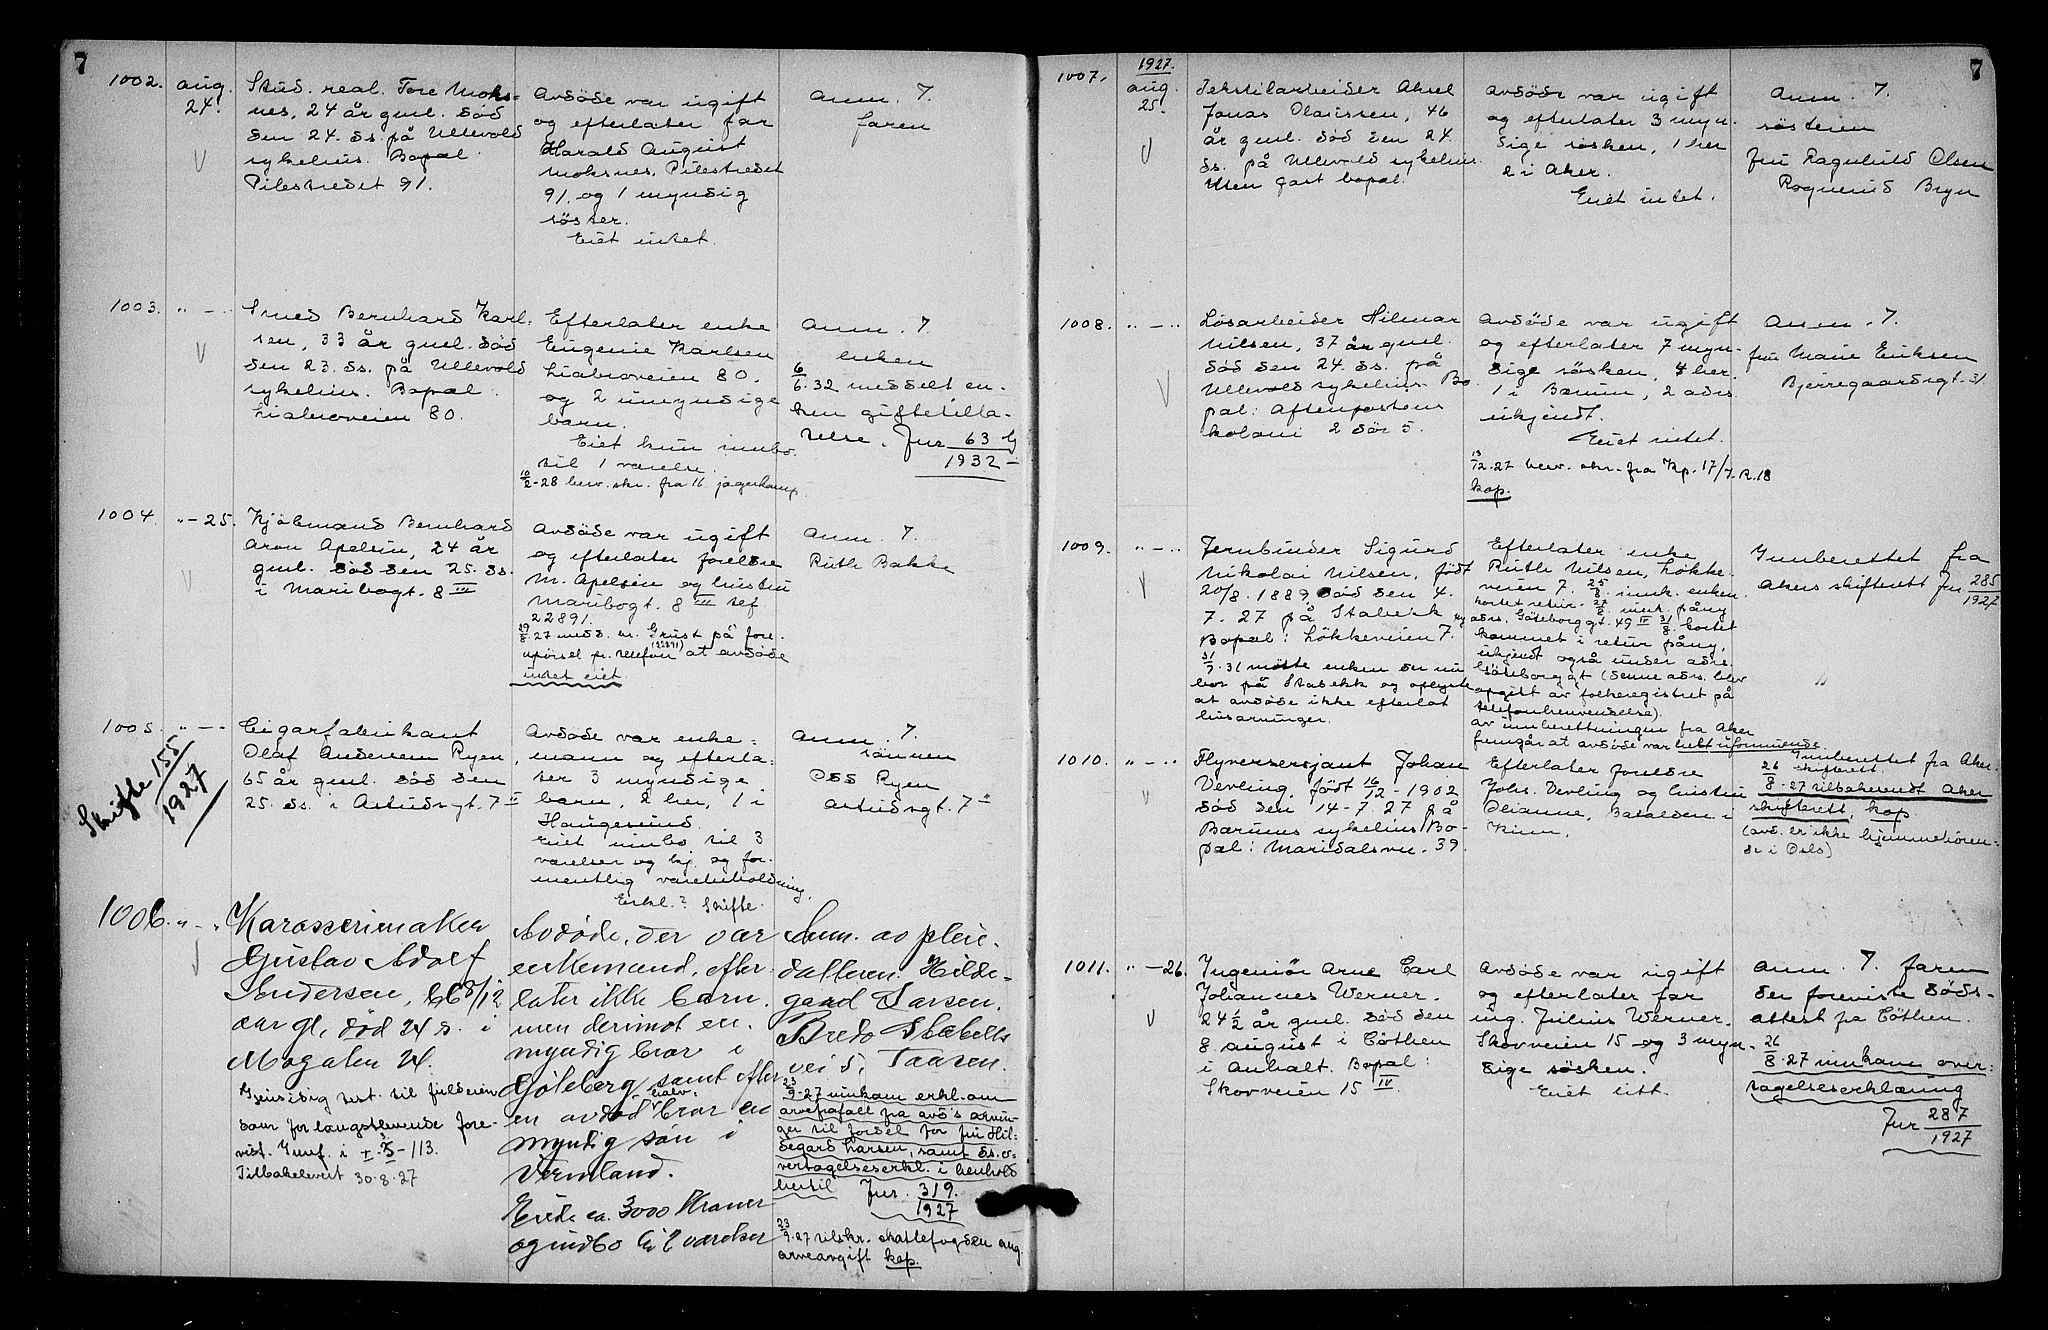 7
1002. aug. 24.
Stud. real. Tore Moks-
nes, 24 år gml. död
den 24. ds. på Ullevold
sykehus. Bopæl
Pilestredet 91.
Avdöde var ugift
og efterlater far
Harald August
Moksnes, Pilestredet
91, og 1 myndig
söster.
Eiet intet.
Anm. 7.
faren
1003. " — "
Smed Bernhard Karl-
sen, 33 år gml. död
den 23. ds. på Ullevold
sykehus. Bopæl
Liabroveien 80.
Efterlater enke
Eugenie Karlsen
Liabroveien 80.
og 2 umyndige
barn.
Eiet kun innbo
til 1 værelse.
10/2-28 henv. skr. fra 16 jagerkomp.
Anm. 7.
enken
6/6.32 meddelt en-
ken giftetilla-
telse. Jur 63 b/1932
1004. " — 25.
Kjöbmand Bernhard
Aron Apelsin, 24 år
gml. död den 25. ds.
i Maribogt. 8 III
Avdöde var ugift
og efterlater foreldre
M. Apelsin og hustru
Maribogt. 8 III tef.
22891.
29/8.27 medd. m. Grust på fore-
spörsel pr. telefon (22891) at avdöde
intet eiet
Anm. 7.
Ruth Bakke
1005. " — "
Skifte 155/1927
Cigarfabrikant
Olaf Andersen Ryen,
65 år gml. död den
25. ds. i Astridsgt. 7 II
Avdöde var enke-
mann og efterla-
ter 3 myndige
barn, 2 her, 1 i
Haugesund.
Eiet innbo til 3
værelser og kj. og for-
mentlig varebeholdning.
Erkl.? Skifte.
Anm. 7.
sönnen
Odd Ryen
Astridsgt. 7 II
1006. " — "
Karosserimaker
Gustav Adolf
Andersen, 66 8/12
aar gl, död 24 ds. i
Mogaten 21.
Gjensidig test. til fuldeien-
dom for længstlevende fore-
vist. Innf. i
Tilbakelevert 30.8.27
Avdöde, der var
enkemand, efter-
later ikke barn.
men derimot en
myndig bror i
Göteberg samt efter
en avdöd halv-bror en
myndig sön i
Vermland.
Eiede ca. 3000 Kroner
og indbo til 2 værelser
Anm. av pleie-
datteren Hilde-
gard Larsen.
Bredo Stabells
vei 5, Taasen.
23/9-27 innkom erkl. om
arvefrafall fra avd's arvin-
ger til fordel for fru Hil-
degard Larsen, samt ds. o-
vertagelseserkl. i henhold
hertil Jur. 319./1927
23/9.27 tilskr. skattefogden ang.
arveavgift kop.
7
1007. 1927. aug. 25.
Tekstilarbeider Aksel
Jonas Olaussen, 46
år gml. död den 24.
ds. på Ullevold sykehus.
Uten fast bopæl.
Avdöde var ugift
og efterlater 3 myn-
dige sösken, 1 her
2 i Aker.
Eiet intet.
Anm. 7.
sösteren
fru Ragnhild Olsen
Rognerud Bryn
1008. " — "
Lösarbeider Hilmar
Nilsen, 37 år gml.
död den 24. ds. på
Ullevold sykehus. Bo-
pæl: Aftenpostens
koloni 2 dör 5.
Avdöde var ugift
og efterlater 7 myn-
dige sösken, 4 her.
1 i Bærum, 2 adrs.
ukjendt.
Eiet intet.
13/12.27 henv. skr. fra Kp. 17/7. R. 18
kop.
Anm. 7.
fru Marie Eriksen
Bjerregaardsgt. 31
1009. " — "
Jernbinder Sigurd
Nikolai Nilsen, födt
20/8. 1889, död den 4.
7. 27 på Stabekk
Bopæl: Lökkeveien 7.
31/7.31 mötte enken der nu
bor på Stabekk og oplyste
at avdöde ikke efterlot
livsarvinger.
Efterlater enke
Ruth Nilsen, Lökke-
veien 7. 25/8 innk. enken.
kortet retur. 27/8 innk. påny
ny adrs. Göteborggt. 49 II 31/8 kortet
kommet i retur påny,
ukjendt også under adrs.
Göteborggt (denne adrs. blev
opgitt av folkeregistret på
telefonhenvendelse).
Av innberettningen fra Aker
fremgår at avdöde var helt uformuende.
Innberettet fra
Akers skifterett Jur 285/1927
"
1010. " — "
Flyversersjant Johan
Verling, födt 16/12-1902
död den 14-7. 27 på
Bærums sykehus. Bo-
pæl: Maridalsvn. 39.
Efterlater foreldre
Johs. Verling og hustru
Olianne, Batalden i
Kinn.
Innberettet fra Aker
skifterett.
26/8.27 tilbakesendt Aker
skifterett, kop
(avd. er ikke hjemmehören-
de i Oslo)
1011. " — 26.
Ingeniör Arne Carl
Johannes Werner.
24 1/2 år gml. död den
8 august i Cöthen
i Anhalt. Bopæl:
Skovveien 15 IV
Avdöde var ugift
og efterlater far
ing. Julius Werner.
Skovveien 15 og 3 myn-
dige sösken.
Eiet litt.
Anm. 7. faren
der foreviste döds-
attest fra Cöthen.
26/8.27 innkom over-
tagelseserklæring
Jur 287/1927